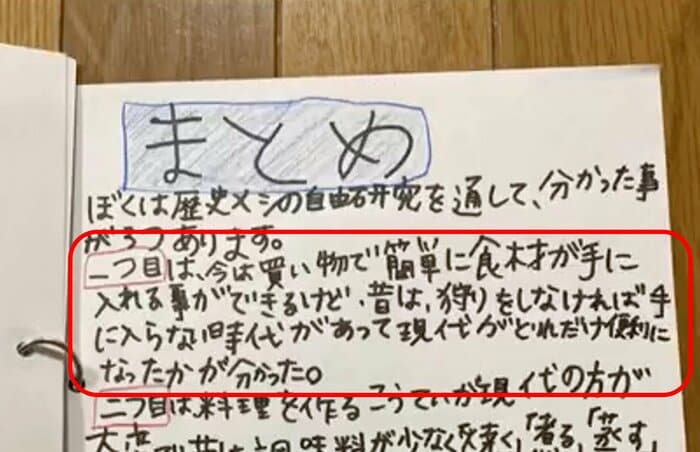 まとめ
ぼくは歴史メシの自由研究を通して、分かった事
が3つあります。
一つ目は、今は買い物で簡単に食材が手に
入れる事ができるけど、昔は、狩りをしなければ手
に入らない時代があって現代がどれだけ便利に
なったかが分かった。
二つ目は、料理を作るこうていが現代の方が
昔は調味料が少なく「煮る」「蒸す」